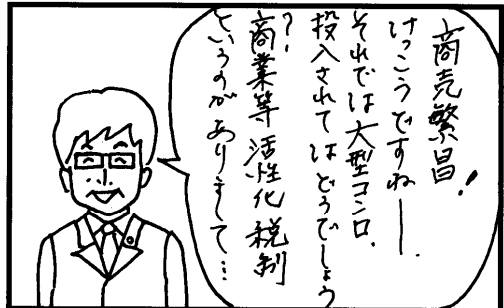 商売繁昌!
けっこうですねー.
それでは大型コンロ.
投入されてはどうでしょう
?.
商業等活性化税制
というのがありまして…